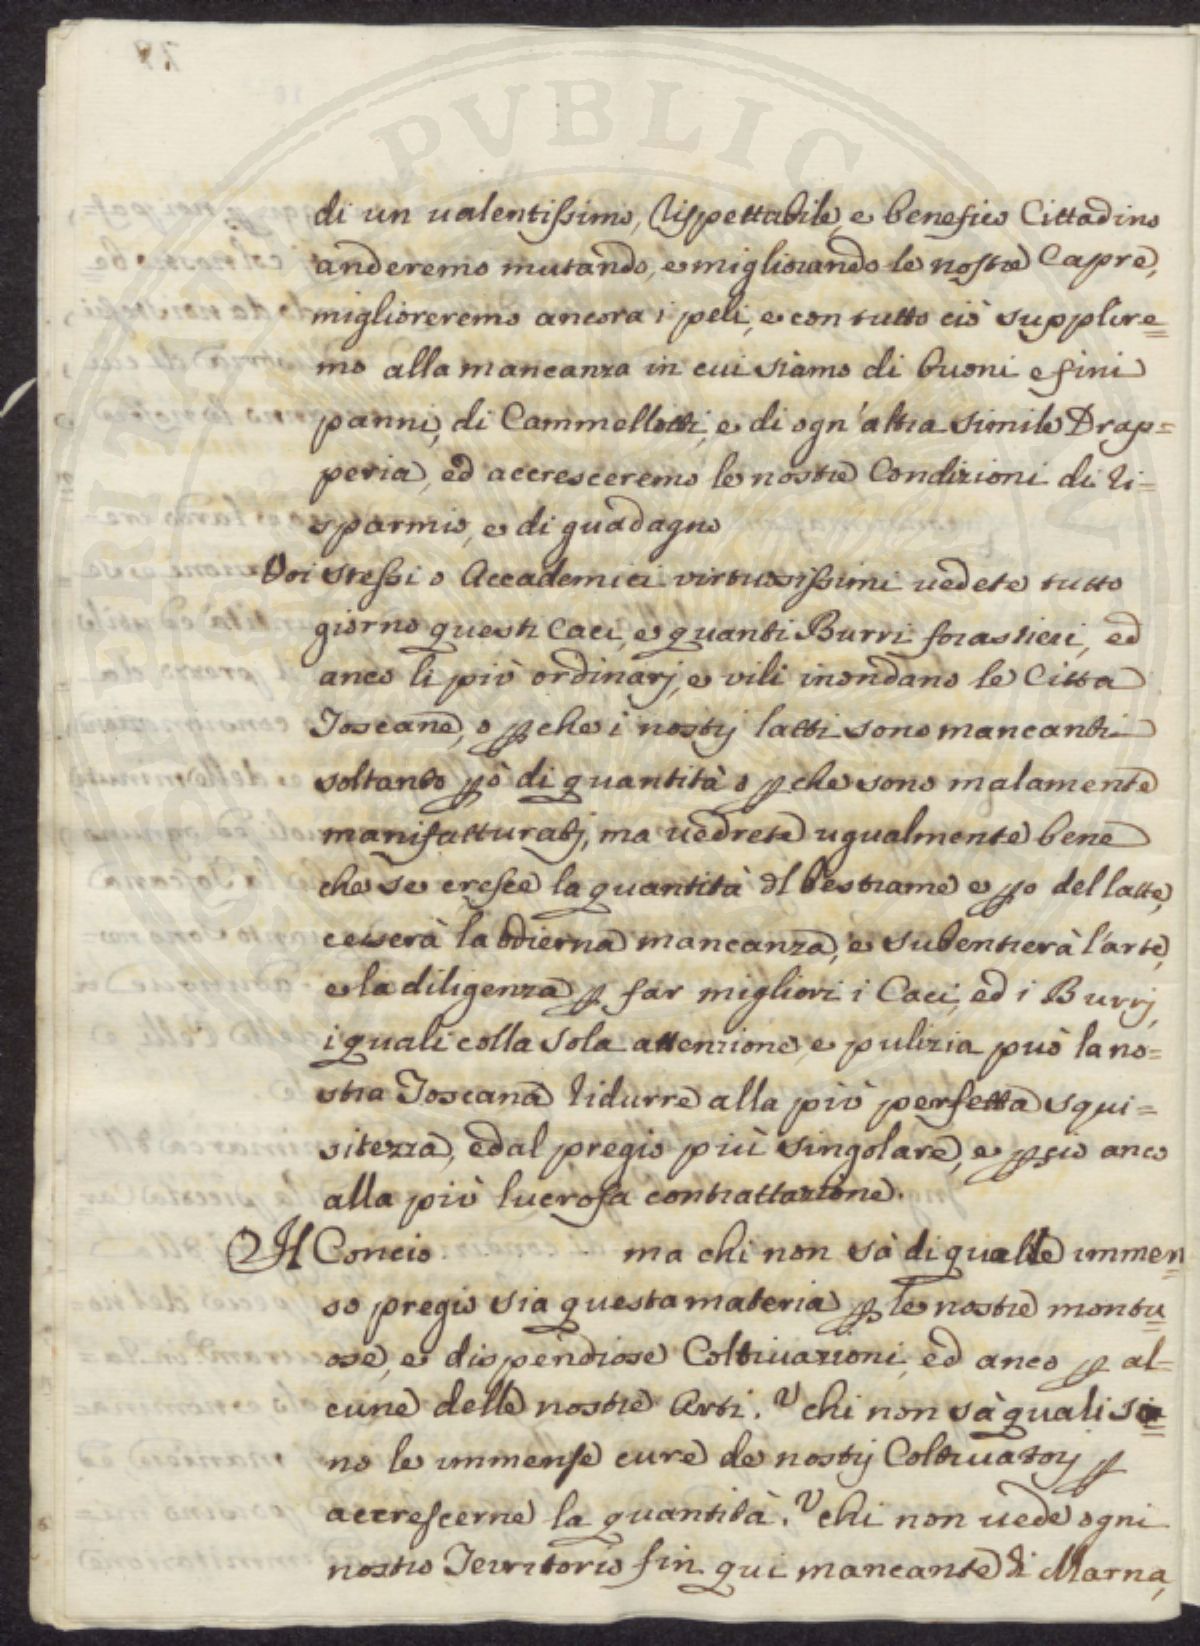 di un valentissimo, rispettabile, e benefico Cittadino
anderemo mutando, e migliorando le nostre Capre,
miglioreremo ancora i peli, e con tutto ciò supplire=
mo alla mancanza in cui siamo di buoni e fini
panni, di Cammellotti, e di ogn'altra simile Drap=
peria, ed accresceremo le nostre Condizioni di ri=
sparmio, e di guadagno
Voi stessi o Accademici virtuosissimi vedete tutto
giorno questi Caci, e quanti Burri forastieri, ed
anco li più ordinarj, e vili inondano le Citta
Toscane, o p che i nostrj latti sono mancanti
soltanto pò di quantità o p che sono malamente
manifatturatj, ma vedrete ugualmente bene
che se cresce la quantità dl bestiame e po del latte,
cesserà la odierna mancanza, e subentrerà l'arte,
e la diligenza p far migliori i Caci, ed i Burrj,
i quali colla sola attenzione, e pulizia può la no=
stra Toscana ridurre alla più perfetta squi=
sitezza, ed al pregio più singolare, e pciò anco
alla più lucrosa contrattazione.
Il Concio ma chi non sà di quale immen=
so pregio sia questa materia p le nostre montu=
ose, e dispendiose Coltivazioni, ed anco p al=
cune delle nostre Arti. chi non sà quali sia=
no le immense cure de nostrj Coltivatorj p
accrescerne la quantità. chi non vede ogni
nostro Territorio fin qui mancante di Marna,
PVBLIC